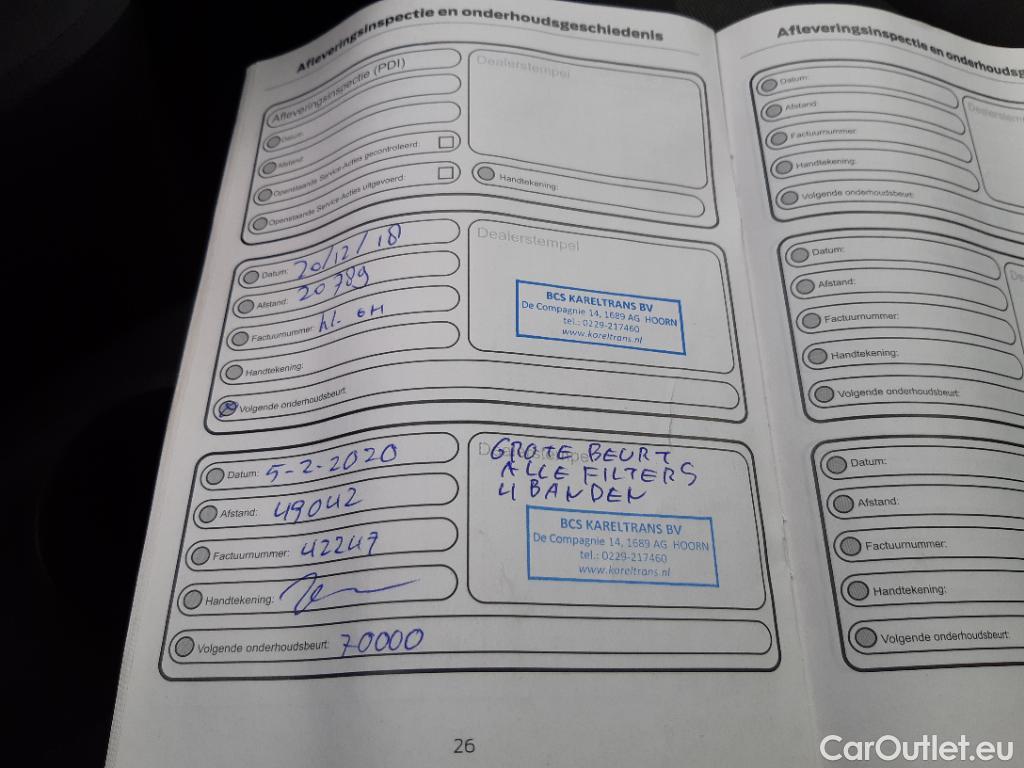 Afleveringsinspectie en onderhoudsgeschiedenis
Afleveringsinspectie (PDI)
Datum:
Afstand:
Openstaande Service Acties gecontroleerd:
Openstaande Service Acties uitgevoerd:
Dealerstempel
Handtekening:
Datum: 20/12/18
Afstand: 20789
Factuurnummer:
Handtekening:
Volgende onderhoudsbeurt
Dealerstempel
BCS KARELTRANS BV
De Compagnie 14, 1689 AG HOORN
tel.: 0229-217460
www.kareltrans.nl
Datum: 5-2-2020
Afstand: 49042
Factuurnummer: 42247
Handtekening:
Volgende onderhoudsbeurt: 70000
Dealerstempel
GROTE BEURT
ALLE FILTERS
4 BANDEN
BCS KARELTRANS BV
De Compagnie 14, 1689 AG HOORN
tel.: 0229-217460
www.kareltrans.nl
26
Afleveringsinspectie en onderhoudsg
Datum:
Afstand:
Factuurnummer:
Handtekening:
Volgende onderhoudsbeurt:
Dealerstem
Datum:
Afstand:
Factuurnummer:
Handtekening:
Volgende onderhoudsbeurt:
De
Datum:
Afstand:
Factuurnummer:
Handtekening:
Volgende onderhoudsbeurt:
CarOutlet.eu